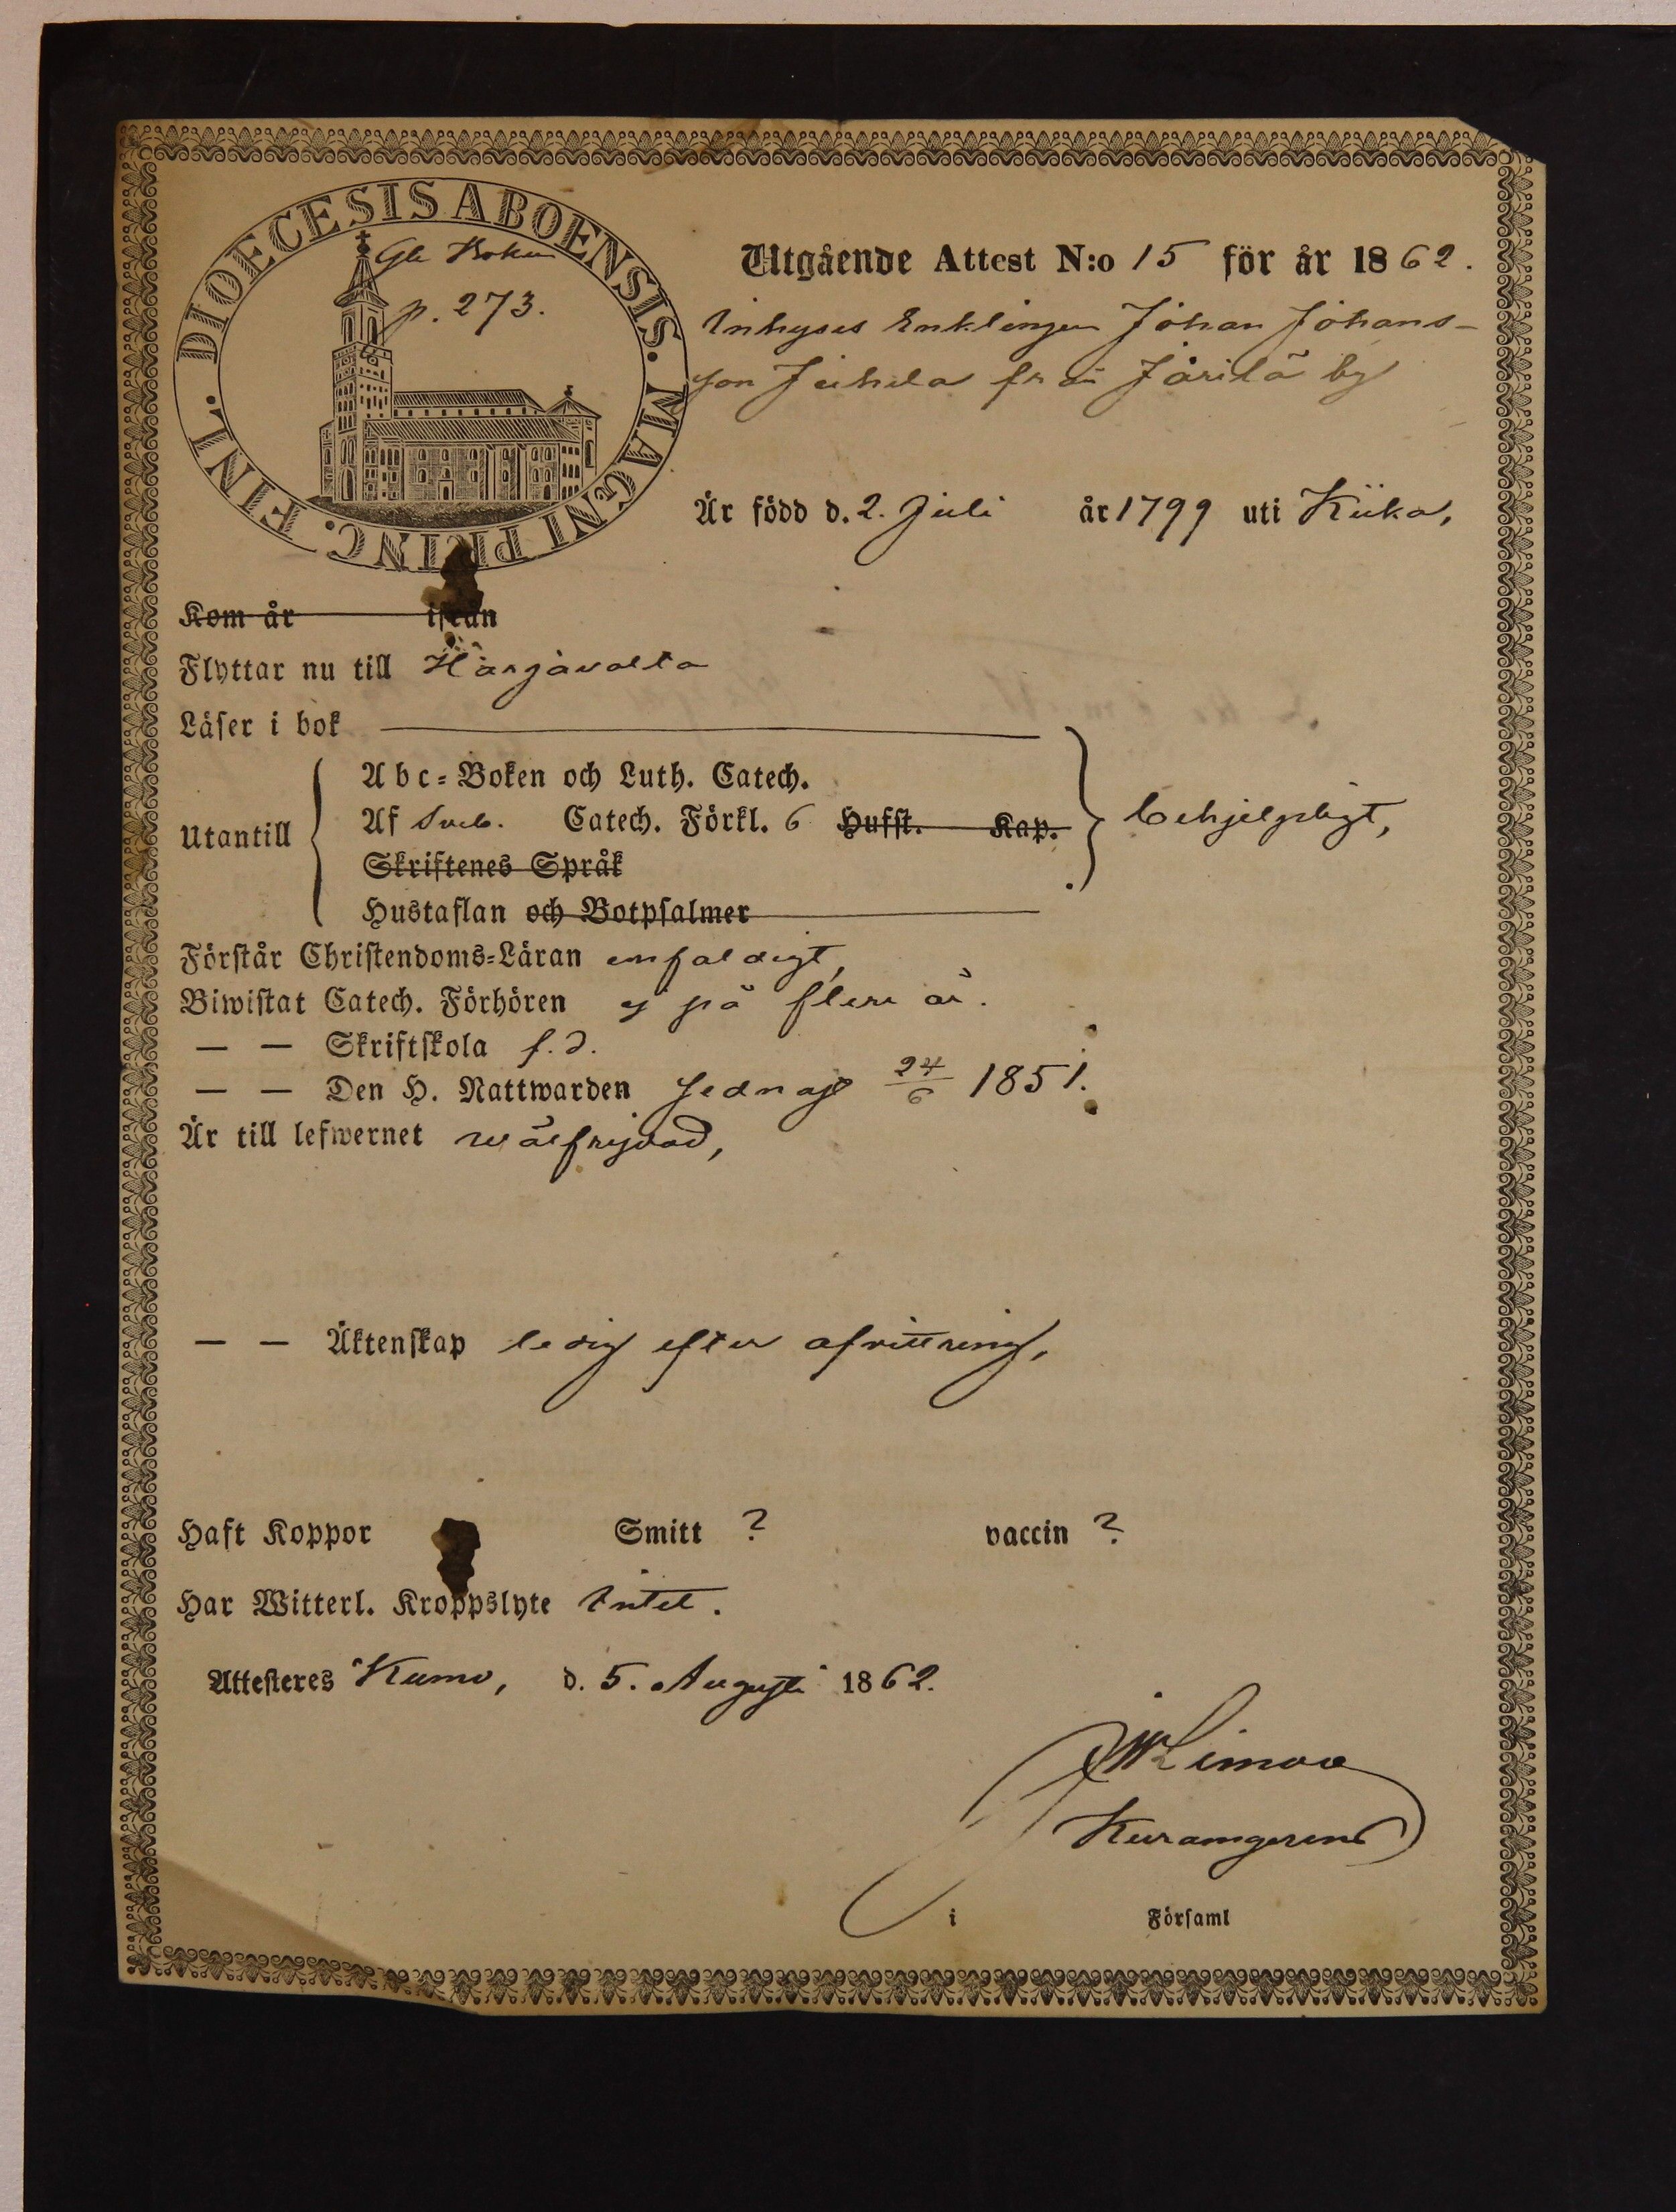 DIOECESIS ABOENSIS. MAGNI PRINC. FINL.
Gla Boken
p. 273.
Utgående Attest N:o 15 för år 1862.
Inhyses Enklingen Johan Johans-
son Juhela från by
Är född d. 2. Juli år 1799 uti Kiuka,
Kom år ifrån
Flyttar nu till Harjavalta
Läser i bok
Utantill
Abc-Boken och Luth. Catech.
Af Sveb. Catech. Förkl. 6 Hufst. Kap.
Skriftenes Språk
Hustaflan och Botpsalmer
behjelpligt,
Förstår Christendoms-Läran enfaldigt,
Biwistat Catech. Förhören ej på flere år.
— — Skriftskola f.d.
— — Den H. Nattwarden sednast 24/6 1851.
Är till lefwernet wälfrejdad,
— — Äktenskap ledig efter afvittring,
Haft Koppor Smitt ? vaccin ?
Har Witterl. Kroppslyte Intet.
Attesteras Kumo, d. 5. Augusti 1862.
Kuramgerens
i Församl